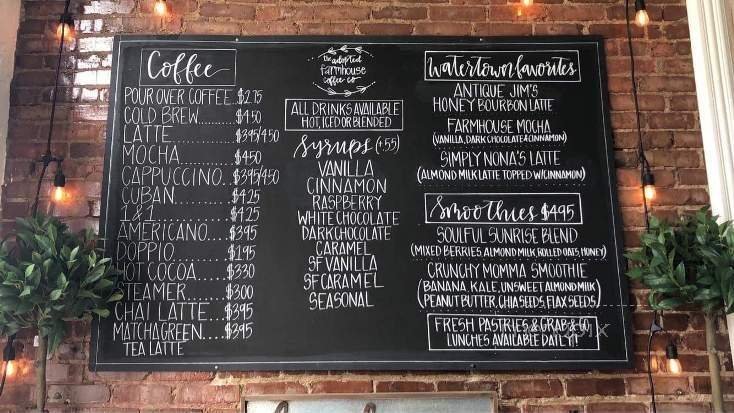 Coffee
POUR OVER COFFEE..$2.75
COLD BREW........$4.50
LATTE..............$3.95/4.50
MOCHA............$4.50
CAPPUCCINO...$3.95/4.50
CUBAN............$4.25
1&1................$4.25
AMERICANO....$3.95
DOPPIO............$1.95
HOT COCOA......$3.30
STEAMER.........$3.00
CHAI LATTE....$3.95
MATCHA GREEN....$3.95
TEA LATTE
the adopted
farmhouse
coffee co
ALL DRINKS AVAILABLE
HOT, ICED OR BLENDED
Syrups (+.55)
VANILLA
CINNAMON
RASPBERRY
WHITE CHOCOLATE
DARK CHOCOLATE
CARAMEL
SF VANILLA
SF CARAMEL
SEASONAL
Watertown favorites
ANTIQUE JIM'S
HONEY BOURBON LATTE
FARMHOUSE MOCHA
(VANILLA, DARK CHOCOLATE & CINNAMON)
SIMPLY NONA'S LATTE
(ALMOND MILK LATTE TOPPED W/CINNAMON)
Smoothies $4.95
SOULFUL SUNRISE BLEND
(MIXED BERRIES, ALMOND MILK, ROLLED OATS, HONEY)
CRUNCHY MOMMA SMOOTHIE
(BANANA, KALE, UNSWEET ALMOND MILK
PEANUT BUTTER, CHIA SEEDS, FLAX SEEDS)
FRESH PASTRIES & GRAB & GO
LUNCHES AVAILABLE DAILY!